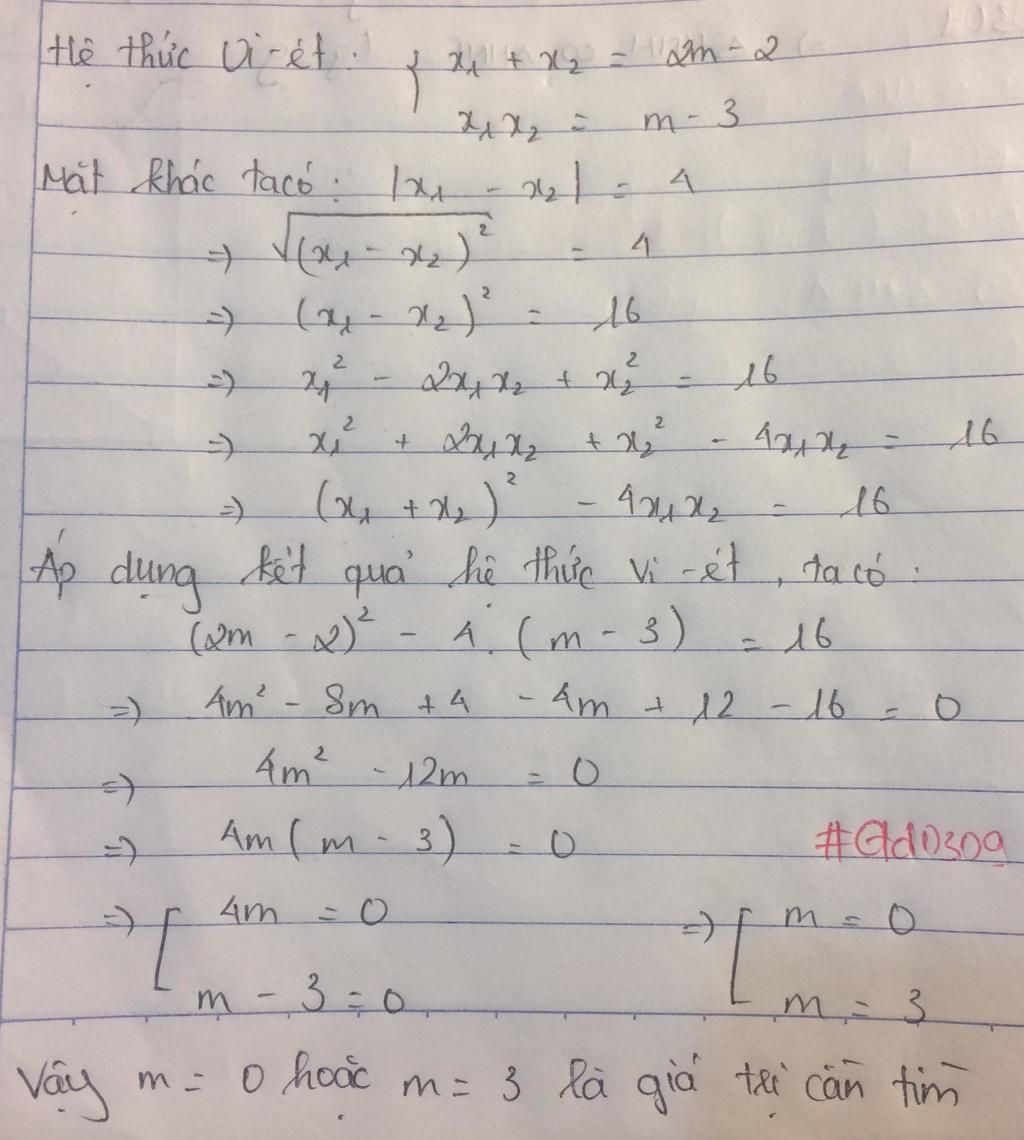 Hệ thức Vi-ét: { x₁ + x₂ = 2m - 2
x₁x₂ = m - 3
Mặt khác ta có: |x₁ - x₂| = 4
=> √(x₁ - x₂)² = 4
=> (x₁ - x₂)² = 16
=> x₁² - 2x₁x₂ + x₂² = 16
=> x₁² + 2x₁x₂ + x₂² - 4x₁x₂ = 16
=> (x₁ + x₂)² - 4x₁x₂ = 16
Áp dụng kết quả hệ thức Vi-ét, ta có:
(2m - 2)² - 4.(m - 3) = 16
=> 4m² - 8m + 4 - 4m + 12 - 16 = 0
=> 4m² - 12m = 0
=> 4m(m - 3) = 0
=> [ 4m = 0 => [ m = 0
m - 3 = 0 m = 3
Vậy m = 0 hoặc m = 3 là giá trị cần tìm